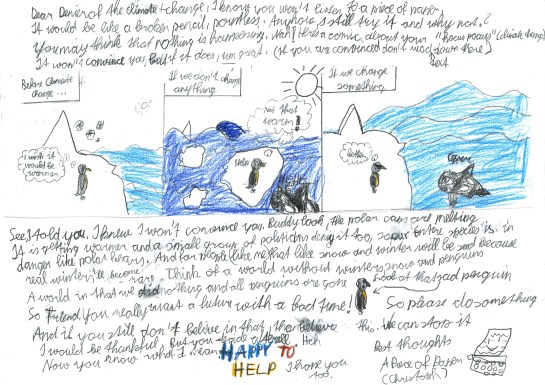 Dear Denier of the climate change, I know you won't listen to a piece of paper.
It would be like a broken pencil, pointless. Anyhow I still try it and why not?
You may think that nothing is happening. Nah! Here a comic about your "hocus pocus" (climate change)
It won't convince you, but if it does, I'm great. (If you are convinced don't read down there)
Before Climate change ...
If we can't change anything
If we change something
I wish it would be warmer
Not that warm!
Help
Better
See I told you, I knew I won't convince you. Buddy look, the polar caps are melting
It is getting warmer and a small group of politicians deny it too, so our entire species is in
danger like polar bears. And for people like me that like snow and winter will be sad because
real winters 'll become rare. Think of a world without winter, snow and penguins
A world in that we did nothing and all penguins are gone
Look at that sad penguin
So Friend you really want a future with a bad time!
So please do something
And if you still don't believe in that, then believe this. We can stop it
I would be thankful, But you
Best thoughts
Now you know what I mean
HAPPY TO HELP
I hope you too.
A Piece of Paper